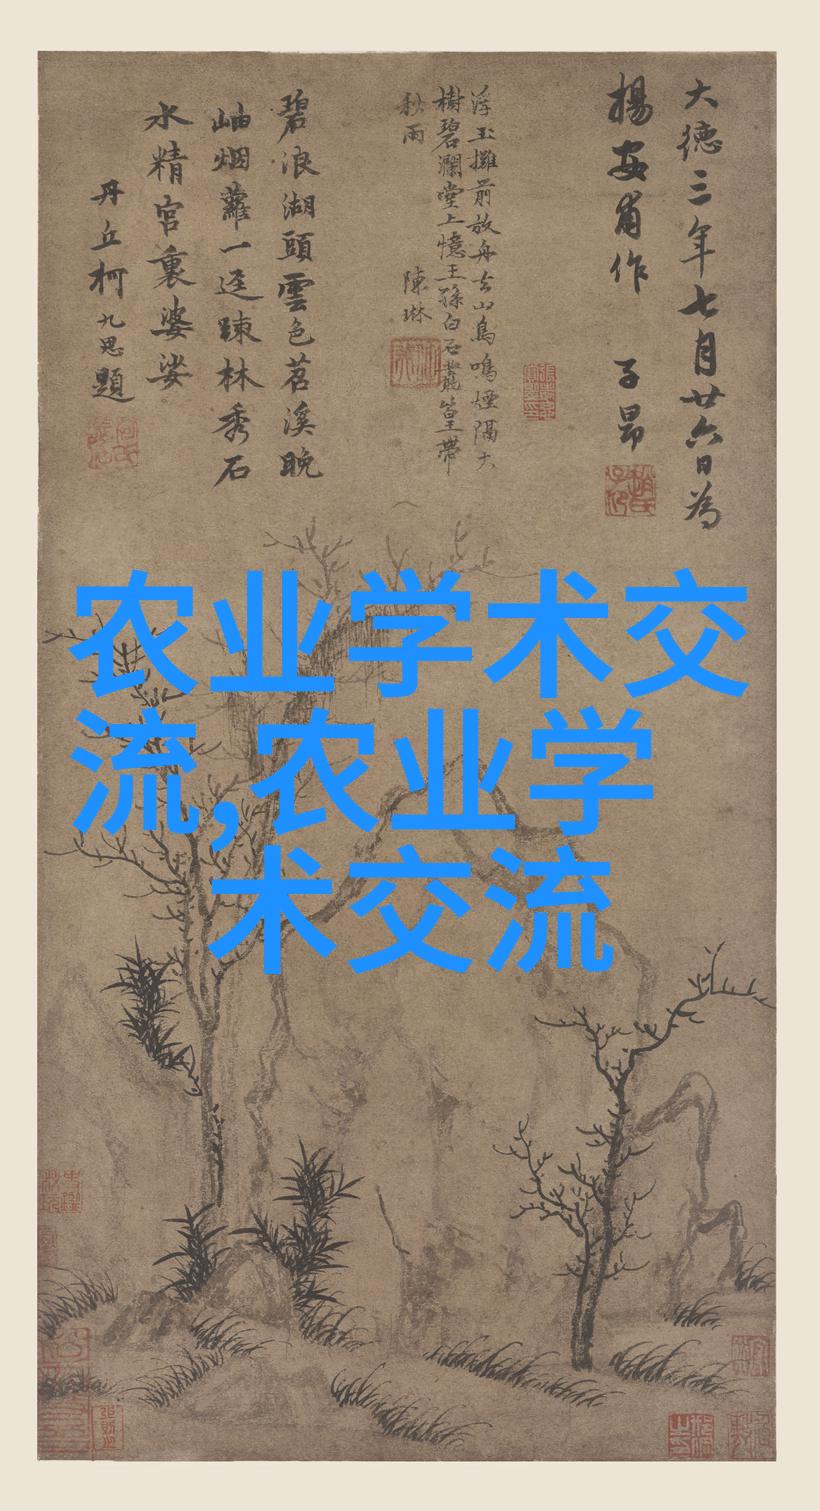 大德三年七月廿六日為
楊安甫作 子昂
浮玉攤前放舟去山鳥鳴煙隔大
樹碧瀾堂上憶王孫白石叢篁帶
秋雨 陳琳
碧浪湖頭雲色茗溪晚
岫烟蘿一逕踈林秀石
水精宮裏婆娑
丹丘柯九思題
农业学术交
流,农业学
术交流